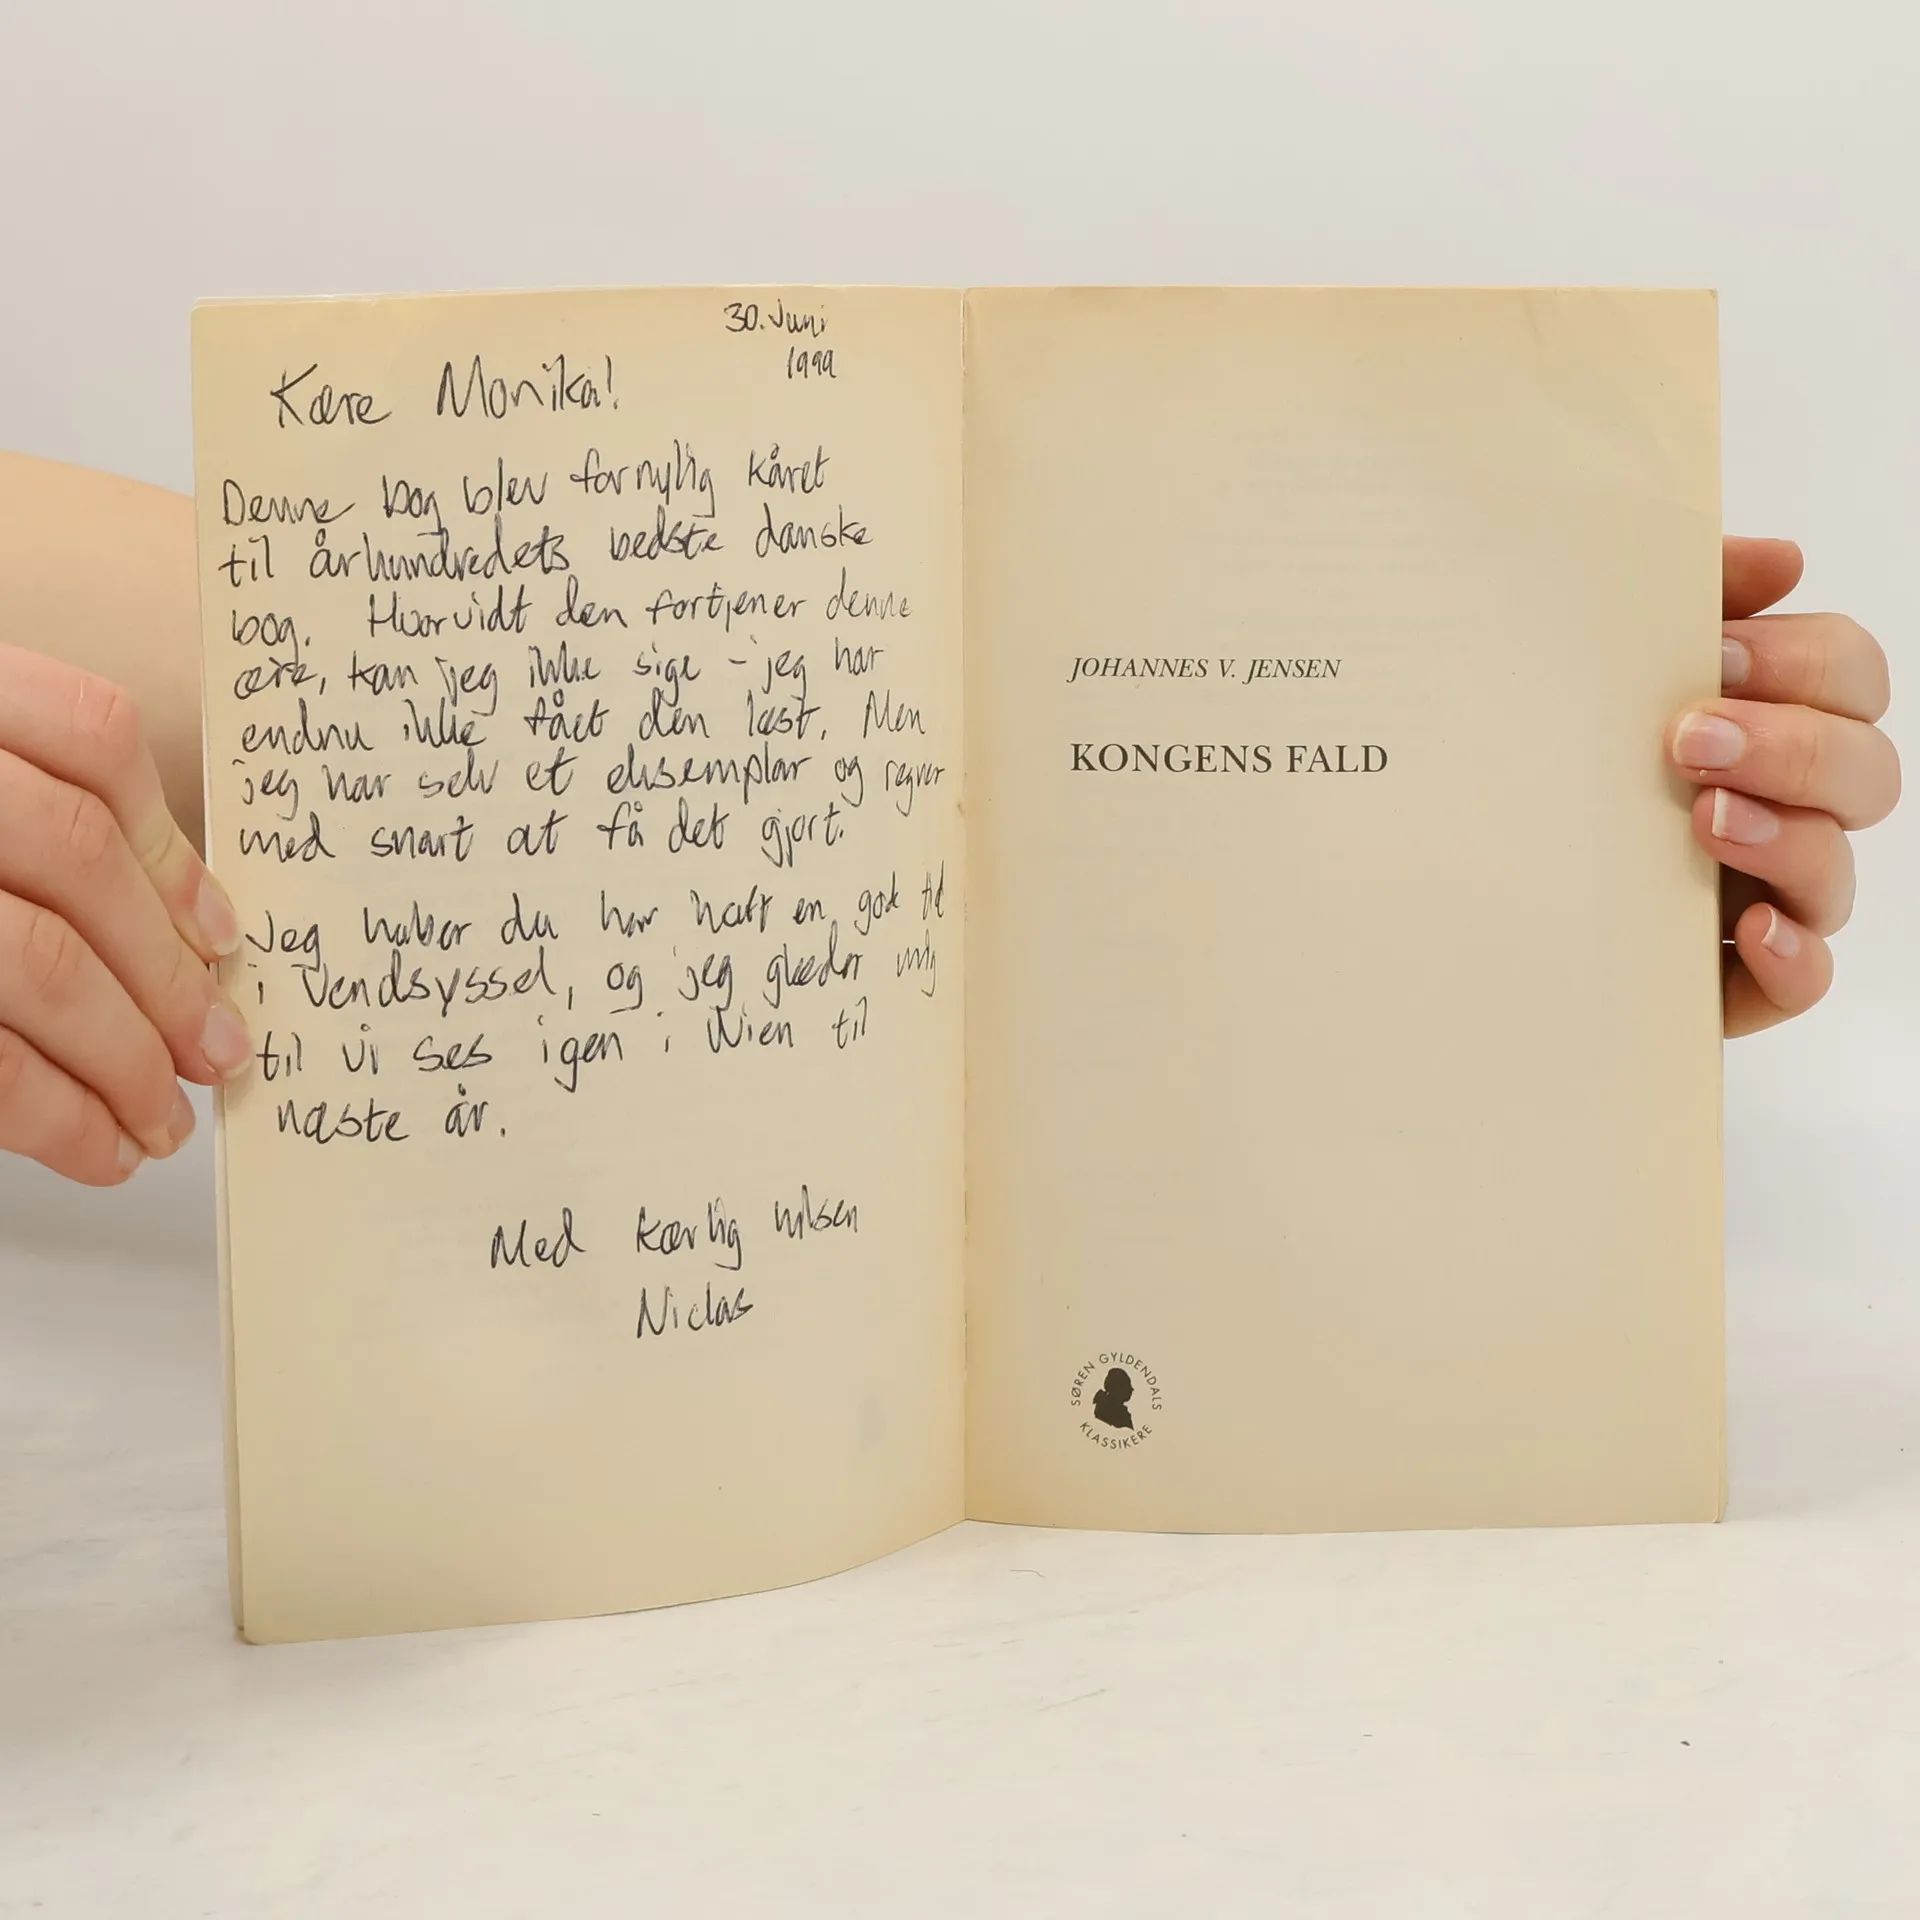 30. Juni
1999
Kære Monika!
Denne bog blev fornylig kåret
til århundredets bedste danske
bog. Hvorvidt den fortjener denne
ære, kan jeg ikke sige - jeg har
endnu ikke fået den læst. Men
jeg har selv et eksemplar og regner
med snart at få det gjort.
Jeg håber du har haft en god tid
i Vendsyssel, og jeg glæder mig
til vi ses igen i Wien til
næste år.
Med kærlig hilsen
Niclas
JOHANNES V. JENSEN
KONGENS FALD
SØREN GYLDENDALS
KLASSIKERE